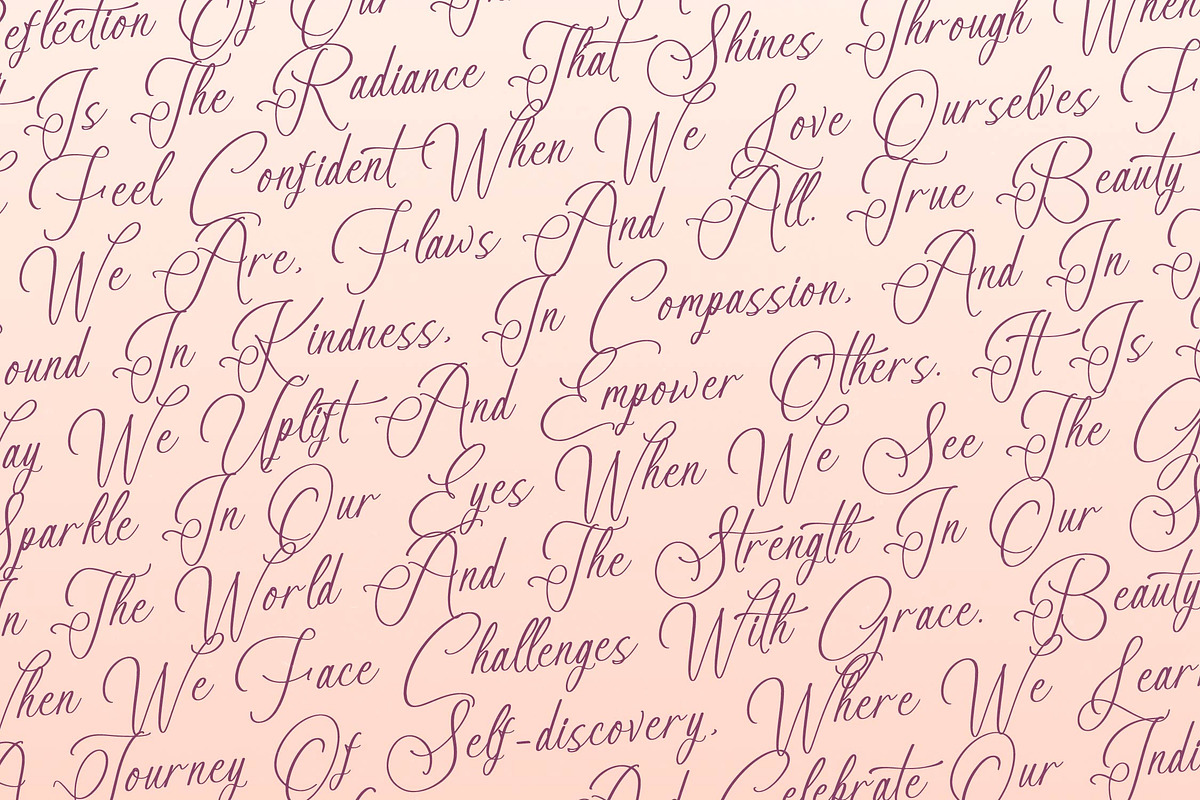 Reflection Of Our
It Is The Radiance That Shines Through When
Feel Confident When We Love Ourselves
We Are, Flaws And All. True Beauty
ound In Kindness, In Compassion, And In
ay We Uplift And Empower Others. It Is
Sparkle In Our Eyes When We See The
In The World And The Strength In Our
hen We Face Challenges With Grace. Beauty
A Journey Of Self-discovery, Where We Learn
And Celebrate Our Indi